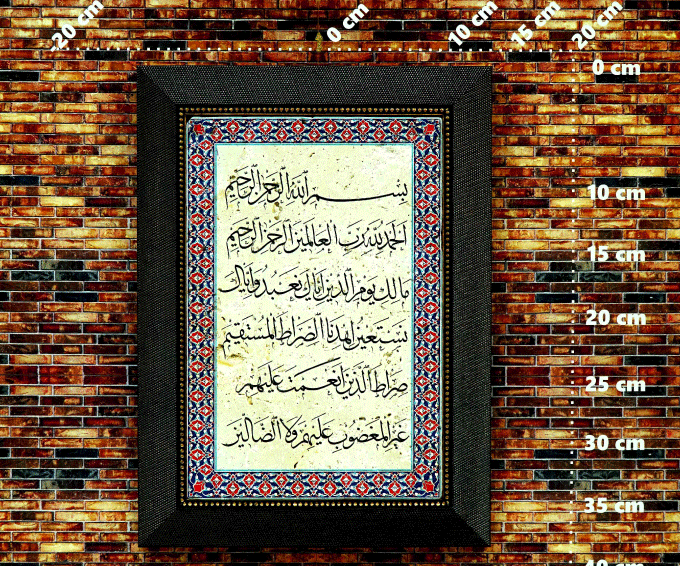 20 cm
0 cm
10 cm
15 cm
20 cm
0 cm
10 cm
15 cm
20 cm
25 cm
30 cm
35 cm
40 cm
بِسْمِ اللّٰهِ الرَّحْمٰنِ الرَّحِيْمِ
اَلْحَمْدُ لِلّٰهِ رَبِّ الْعَالَمِيْنَ الرَّحْمٰنِ الرَّحِيْمِ
مَالِكِ يَوْمِ الدِّيْنِ اِيَّاكَ نَعْبُدُ وَاِيَّاكَ
نَسْتَعِيْنُ اِهْدِنَا الصِّرَاطَ الْمُسْتَقِيْمَ
صِرَاطَ الَّذِيْنَ اَنْعَمْتَ عَلَيْهِمْ
غَيْرِ الْمَغْضُوْبِ عَلَيْهِمْ وَلَا الضَّالِّيْنَ